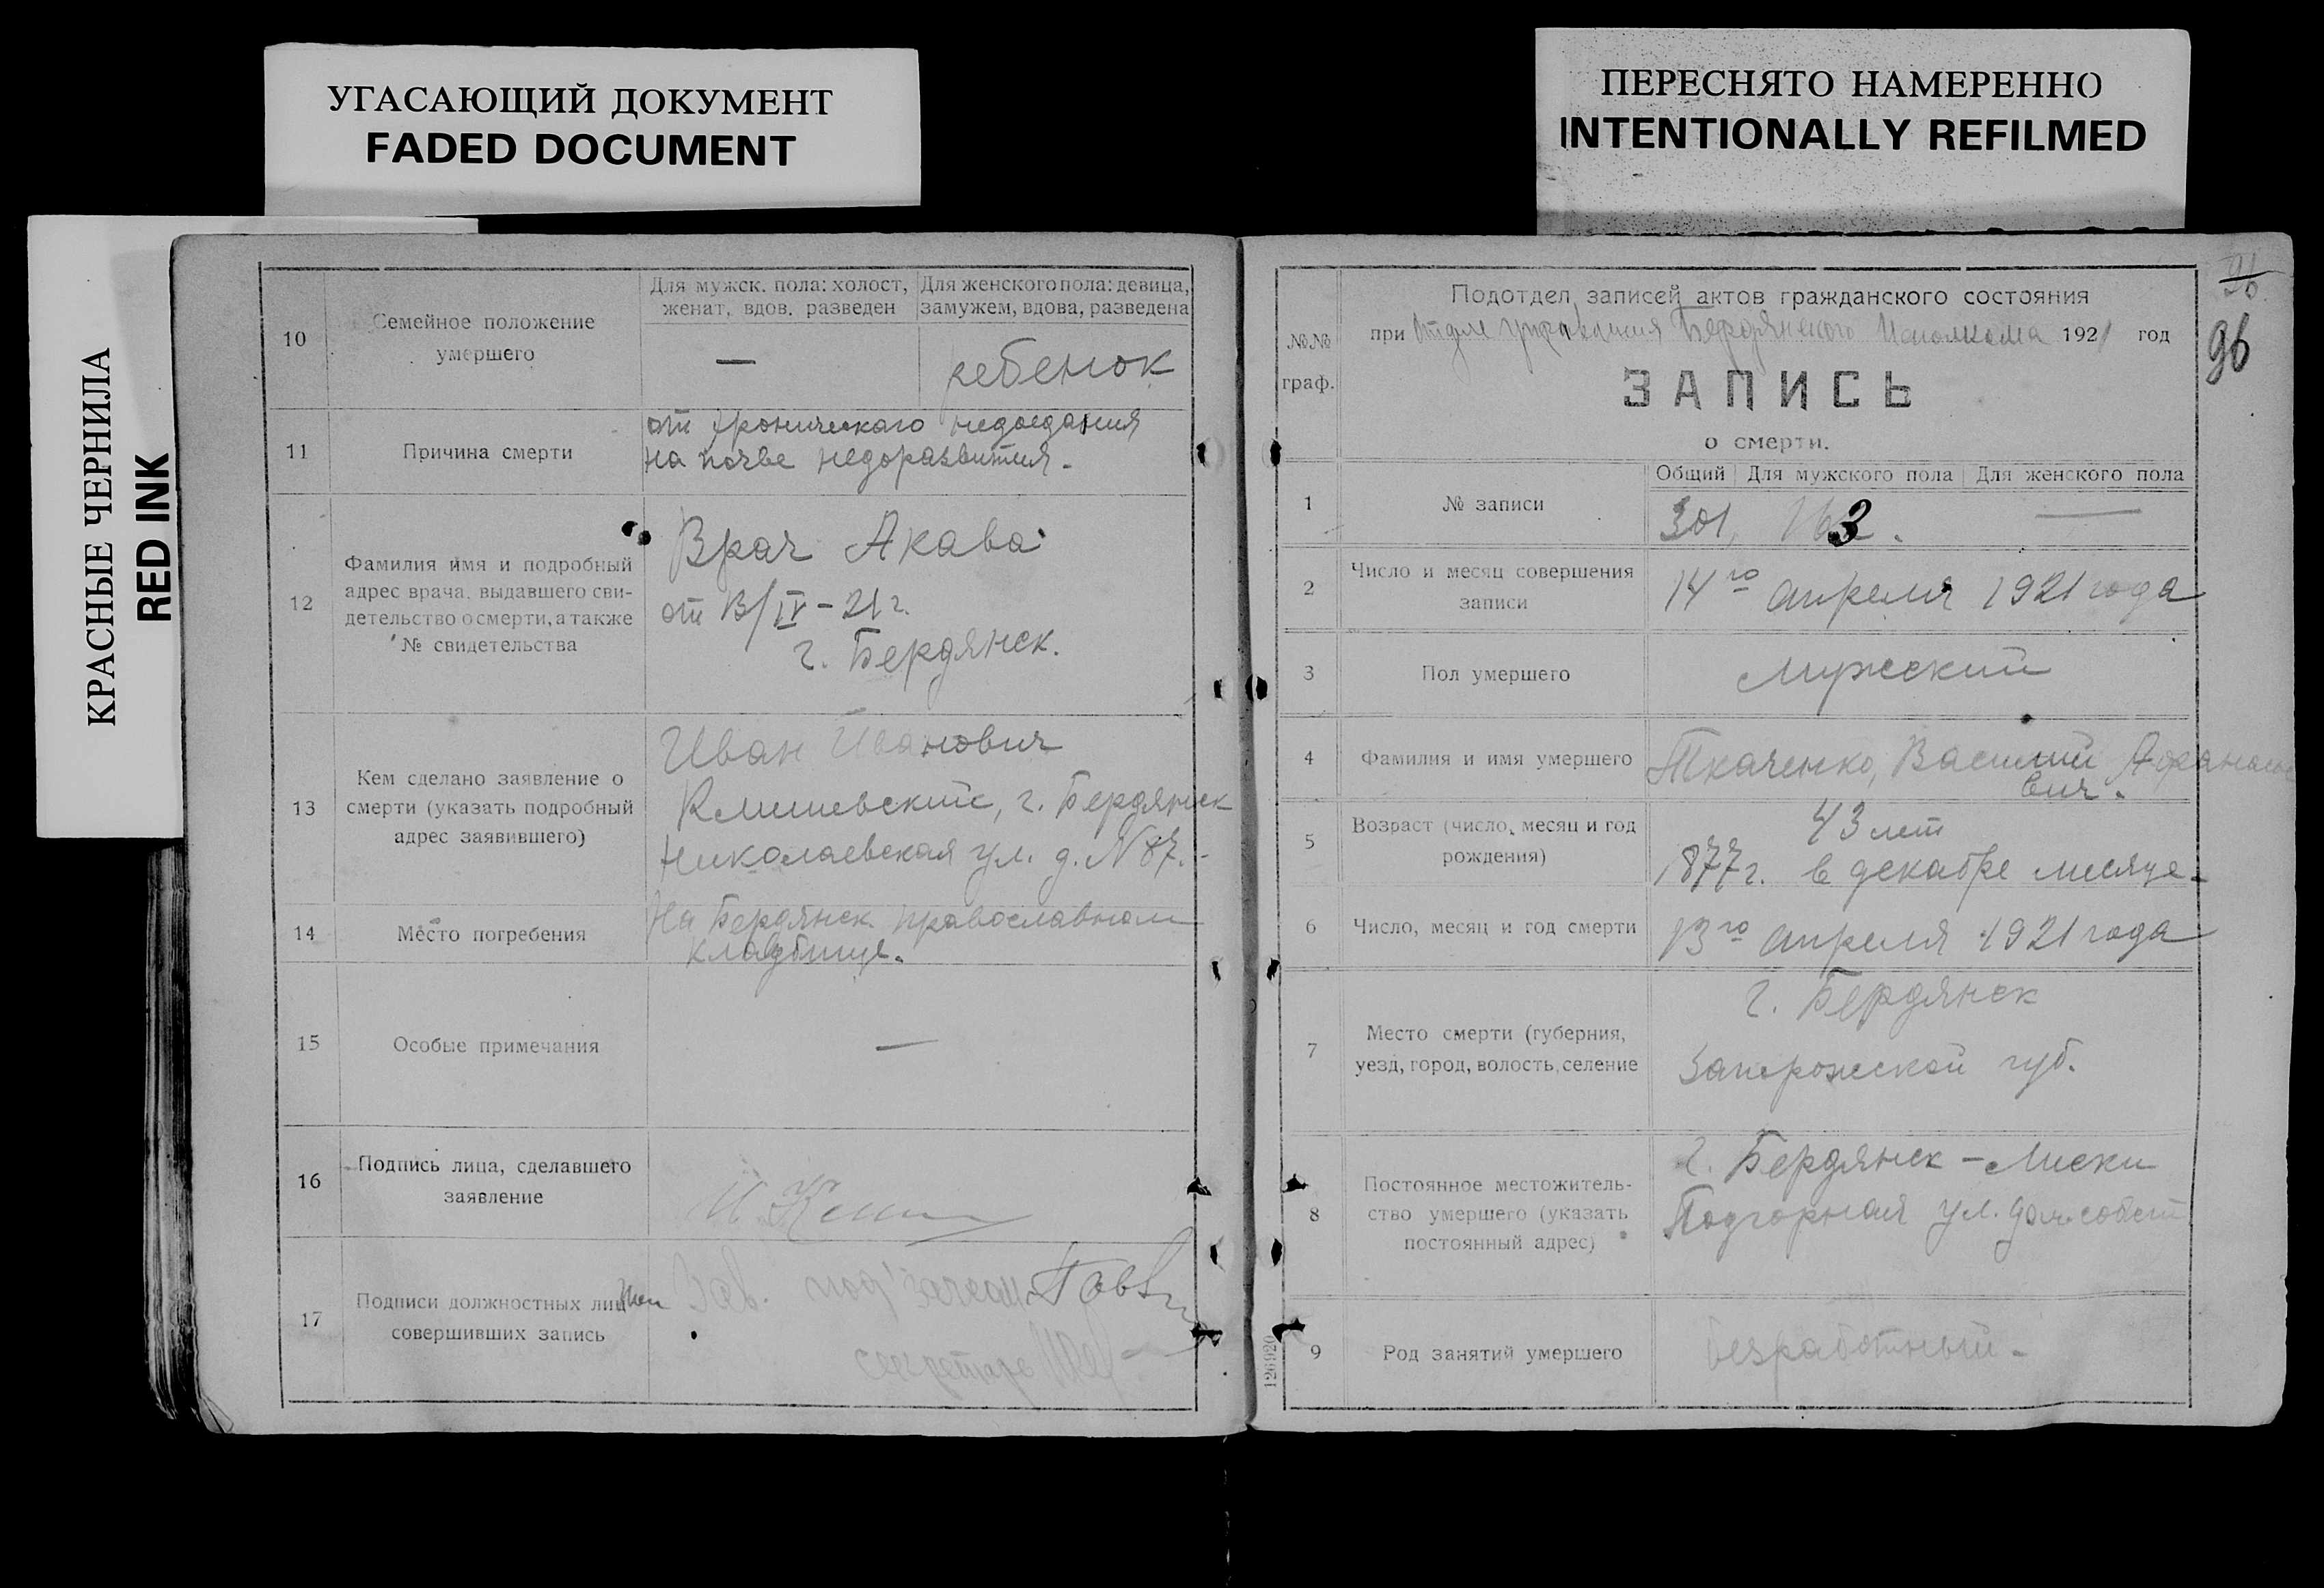 УГАСАЮЩИЙ ДОКУМЕНТ
FADED DOCUMENT
ПЕРЕСНЯТО НАМЕРЕННО
INTENTIONALLY REFILMED
КРАСНЫЕ ЧЕРНИЛА
RED INK
10
Семейное положение
умершего
Для мужск. пола: холост,
женат, вдов, разведен
Для женского пола: девица,
замужем, вдова, разведена
—
ребенок
11
Причина смерти
от хроническаго недоедания
на почве недоразвития.
12
Фамилия имя и подробный
адрес врача, выдавшего сви-
детельство о смерти, а также
№ свидетельства
Врач Акава
от 13/IV – 21 г.
г. Бердянск.
13
Кем сделано заявление о
смерти (указать подробный
адрес заявившего)
Иван Иванович
г. Бердянск
Николаевская ул. д. N 87.
14
Место погребения
На Бердянск. православном
кладбище.
15
Особые примечания
—
16
Подпись лица, сделавшего
заявление
17
Подписи должностных лиц
совершивших запись
Зав.
секретарь
96
96
№№
граф.
Подотдел записей актов гражданского состояния
при Отделе Управления Бердянского Исполкома 1921 год
ЗАПИСЬ
о смерти.
1
№ записи
Общий
Для мужского пола
Для женского пола
301, 163. —
2
Число и месяц совершения
записи
14го апреля 1921 года
3
Пол умершего
Мужеский
4
Фамилия и имя умершего
Ткаченко, Василий Афанасье
вич.
5
Возраст (число, месяц и год
рождения)
43 лет
1877 г. в декабре месяце.
6
Число, месяц и год смерти
13го апреля 1921 года
7
Место смерти (губерния,
уезд, город, волость, селение
г. Бердянск
Запорожской губ.
8
Постоянное местожитель-
ство умершего (указать
постоянный адрес)
г. Бердянск – Лиски
Подгорная ул. дом собств
9
Род занятий умершего
безработный –